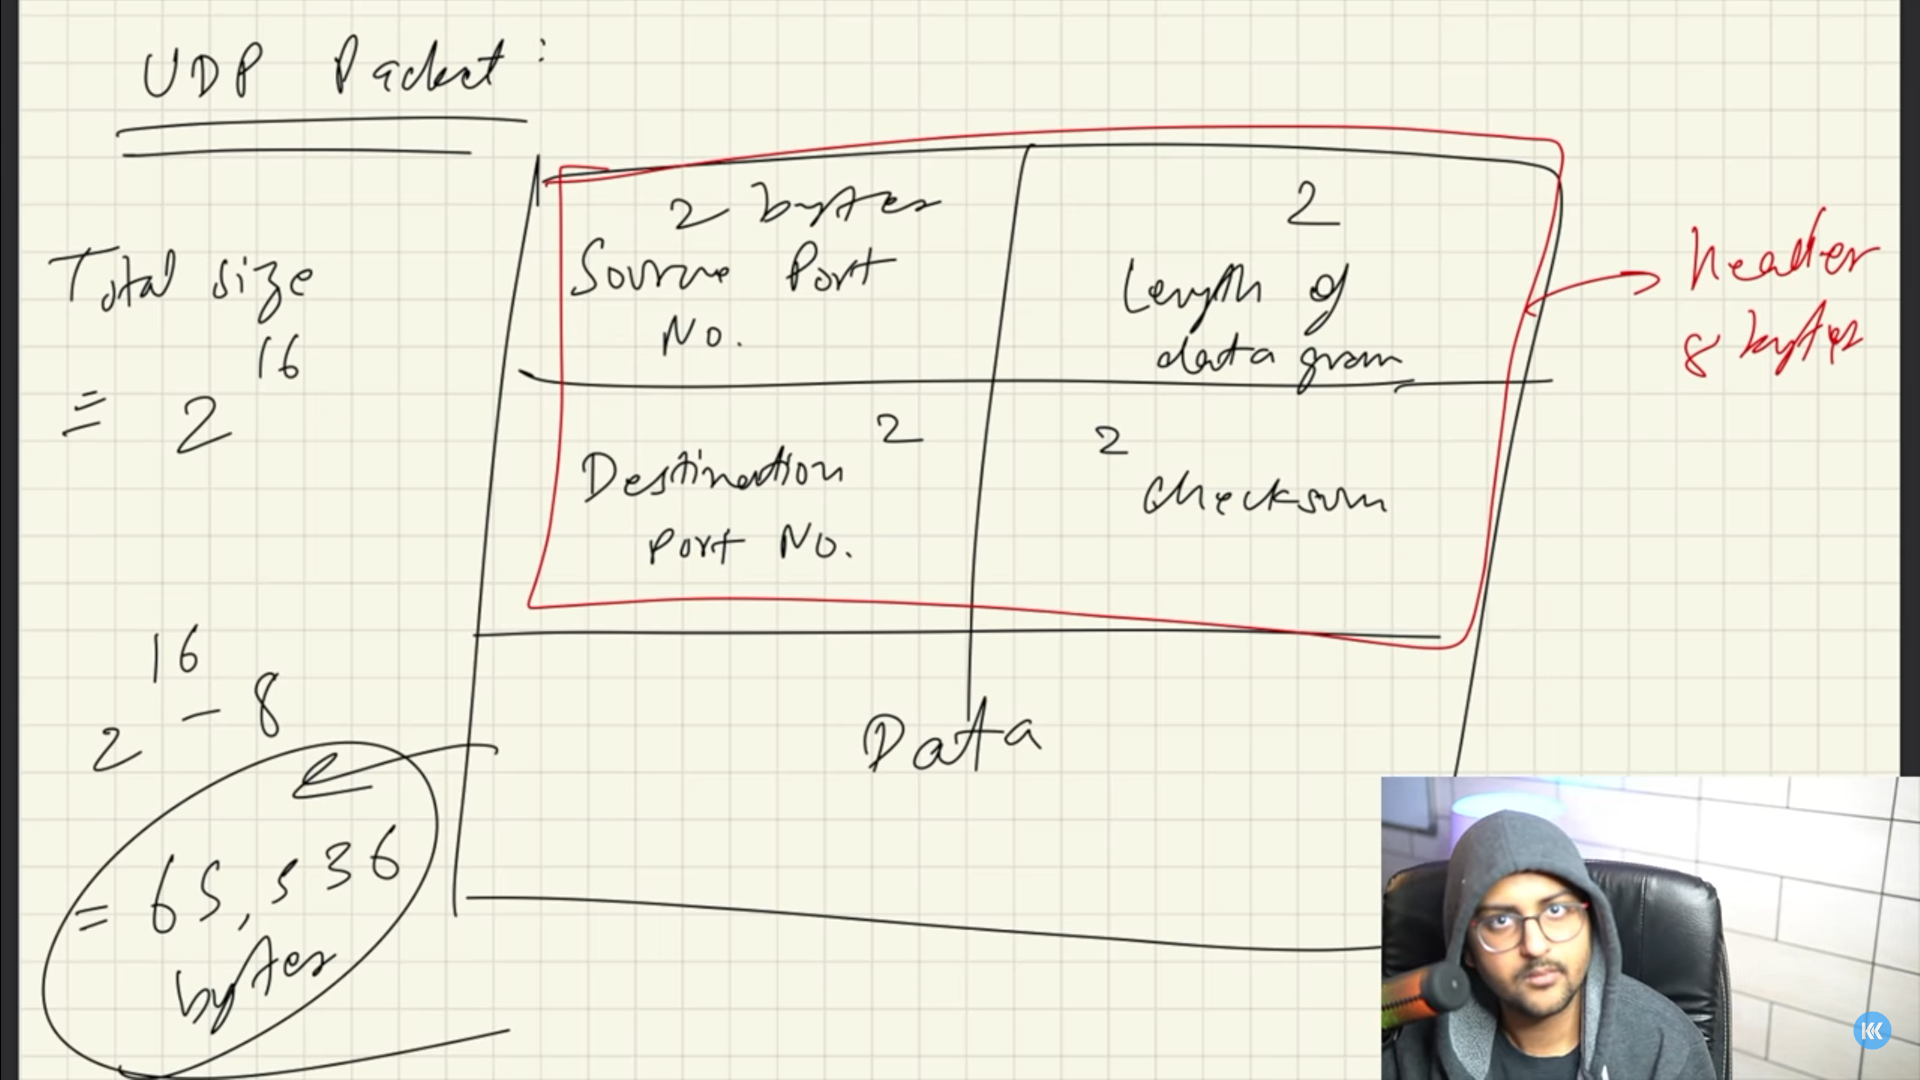 UDP Packet:
Total size
= 2^16
2^16 - 8
= 65,536
bytes
2 bytes
Source Port
No.
2
Length of
datagram
Destination 2
Port No.
2
Checksum
Data
header
8 bytes